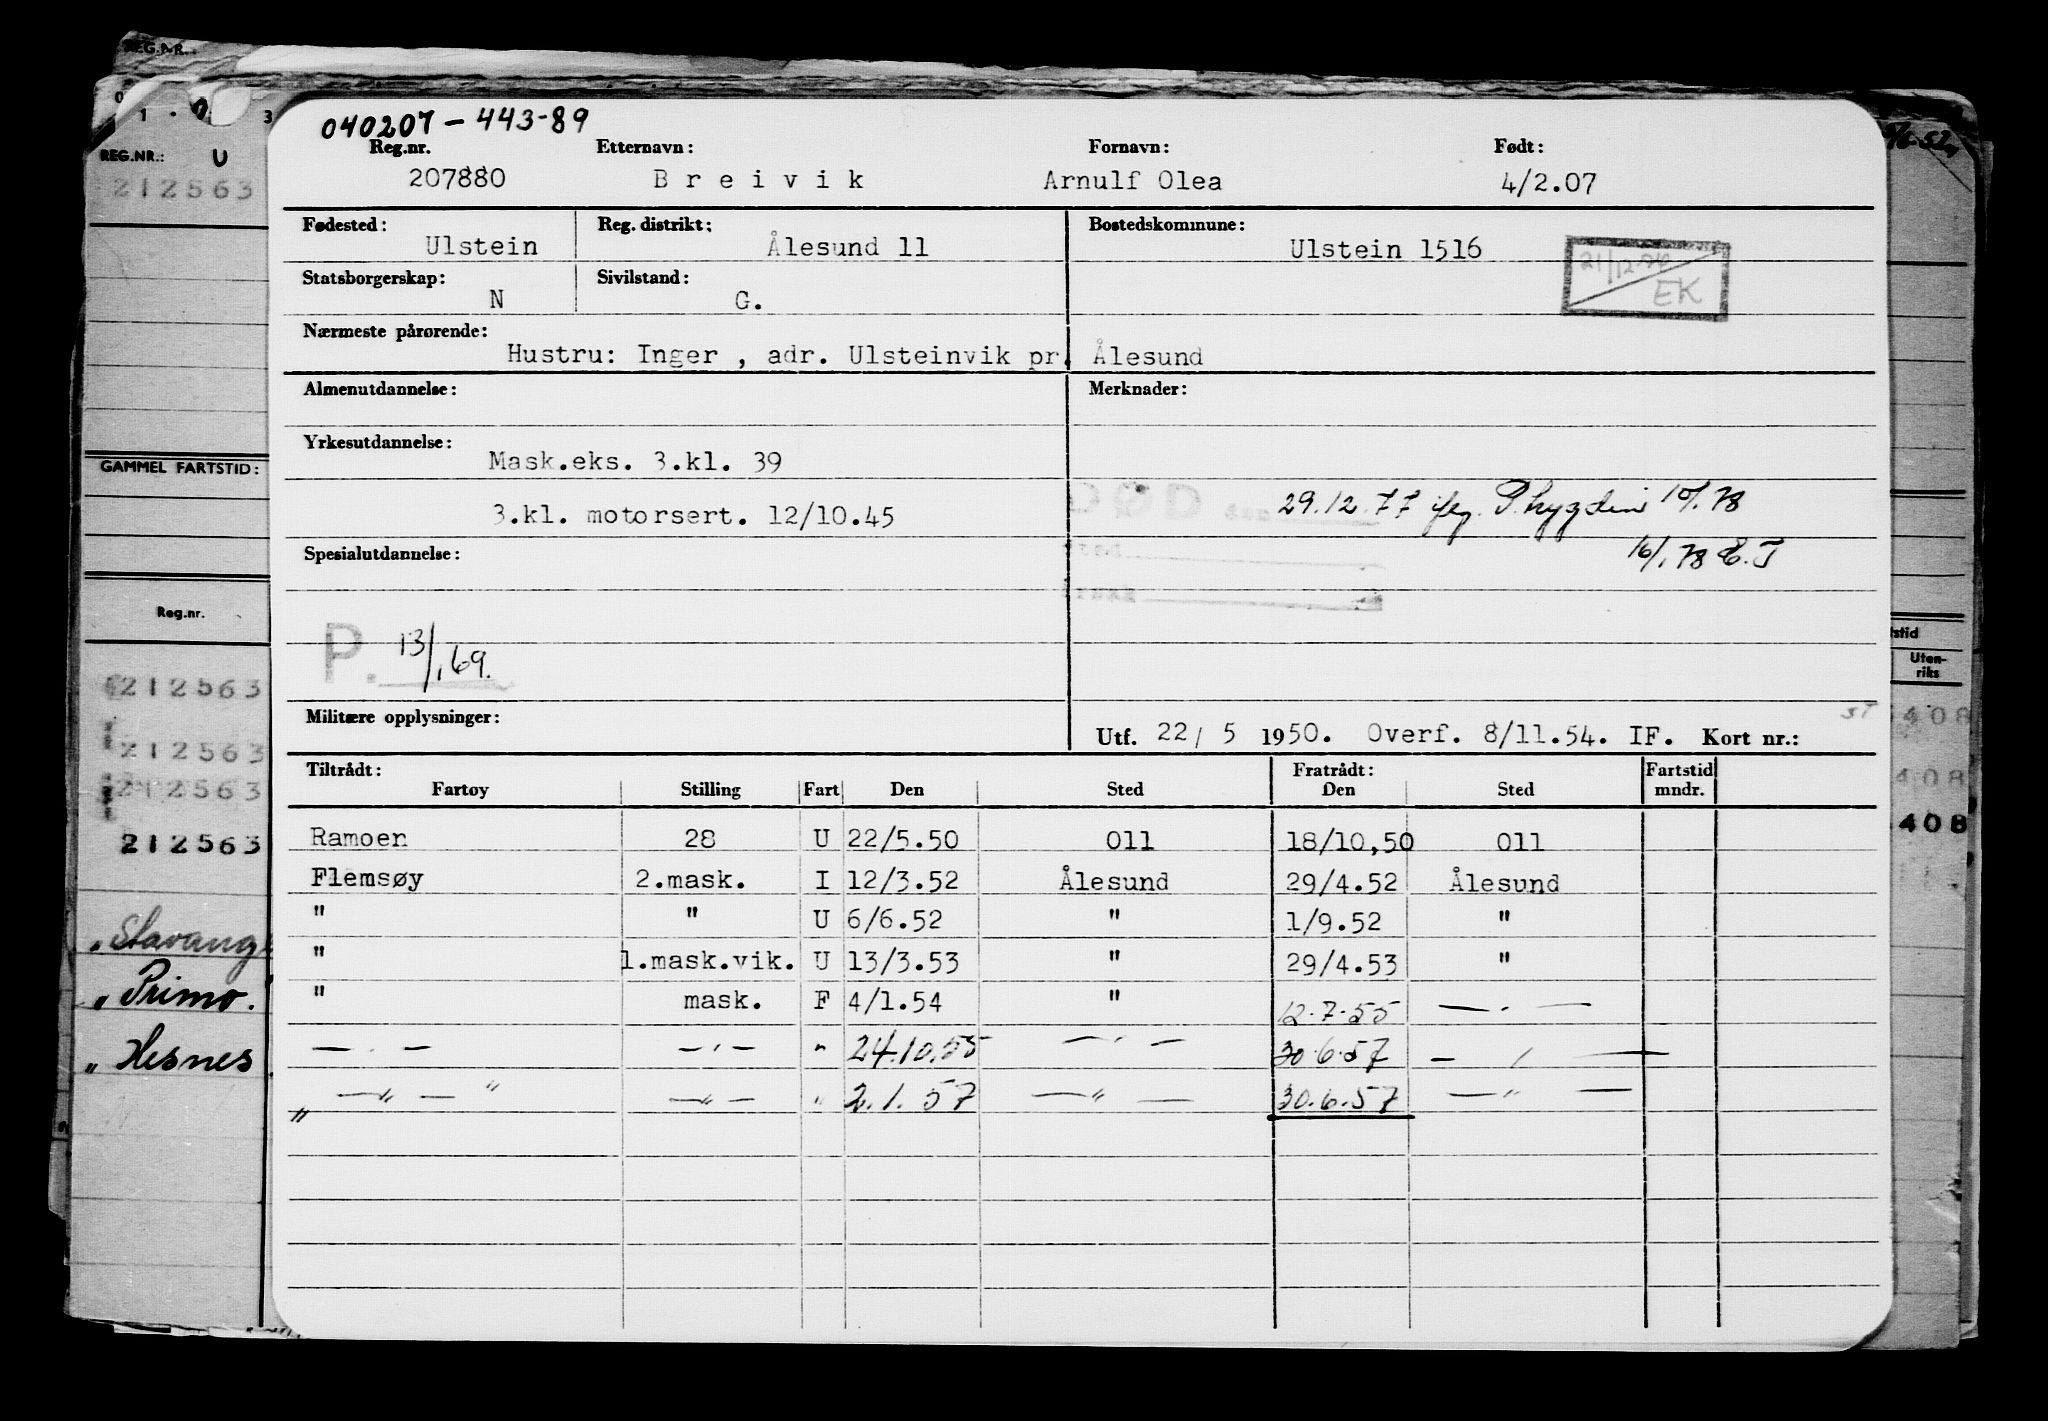 REG.NR.:
040207-443-89
1 . 3
Reg.nr. Etternavn: Fornavn: Født:
207880 Breivik Arnulf Olea 4/2.07
REG.NR.: U
212563
Fødested: Ulstein Reg. distrikt: Ålesund 11 Bostedskommune: Ulstein 1516
21/12-76
EK
Statsborgerskap: N Sivilstand: G.
Nærmeste pårørende:
Hustru: Inger , adr. Ulsteinvik pr. Ålesund
Almenutdannelse: Merknader:
Yrkesutdannelse:
Mask.eks. 3.kl. 39
GAMMEL FARTSTID:
3.kl. motorsert. 12/10.45
DØD
29.12.77
16/1.78 E.T
Spesialutdannelse:
Reg.nr.
P. 13/1.69.
Utenriks
212563
Militære opplysninger:
Utf. 22/5 1950. Overf. 8/11.54. IF. Kort nr.:
408
212563
Tiltrådt: Fratrådt: Fartstid
Fartøy Stilling Fart Den Sted Den Sted mndr.
212563 408
Ramoen 28 U 22/5.50 011 18/10,50 011
212563 408
Flemsøy 2.mask. I 12/3.52 Ålesund 29/4.52 Ålesund
" " U 6/6.52 " 1/9.52 "
" 1.mask.vik. U 13/3.53 " 29/4.53 "
" mask. F 4/1.54 " 12.7.55 — . —
— . — — . — " 24.10.55 — . — 30.6.57 — . —
" — " — " — " — " 2.1.57 — " — 30.6.57 — " —
" Primo.
" Hesnes